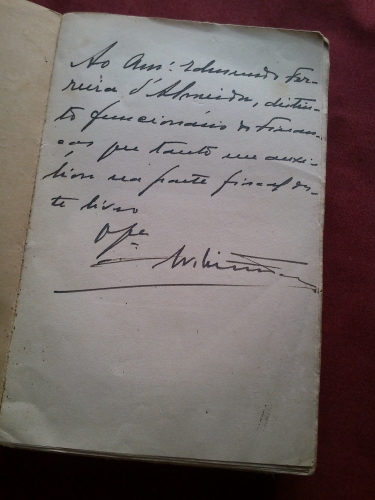 Ao Amº. Edmundo Fer-
reira d'Almeida, distin-
to funcionário de Finan-
ças que tanto me auxi-
liou na parte fiscal des-
te livro
Ofe